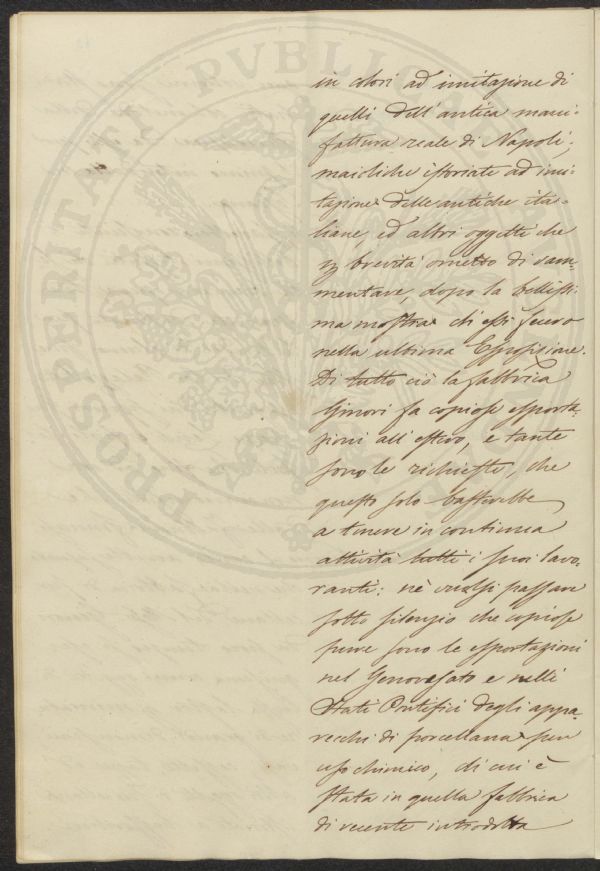 in colori ad imitazione di
quelli dell'antica mani-
fattura reale di Napoli,
maioliche istoriate ad imi-
tazione delle antiche ita-
liane, ed altri oggetti che
brevità ometto di ram-
mentare, dopo la bellissi-
ma mostra di essi fecero
nella ultima Esposizione.
Di tutto ciò la fabbrica
Ginori fa copiose esporta-
zioni all'estero, e tante
sono le richieste, che
questo solo basterebbe
a tenere in continua
attività tutti i suoi lavo-
ranti: nè vuolsi passare
sotto silenzio che copiose
pure sono le esportazioni
nel Genovesato e nelli
Stati Pontifici degli appa-
recchi di porcellana per
uso chimico, di cui è
stata in quella fabbrica
di recente introdotta
PROSPERITATI PUBLICAE